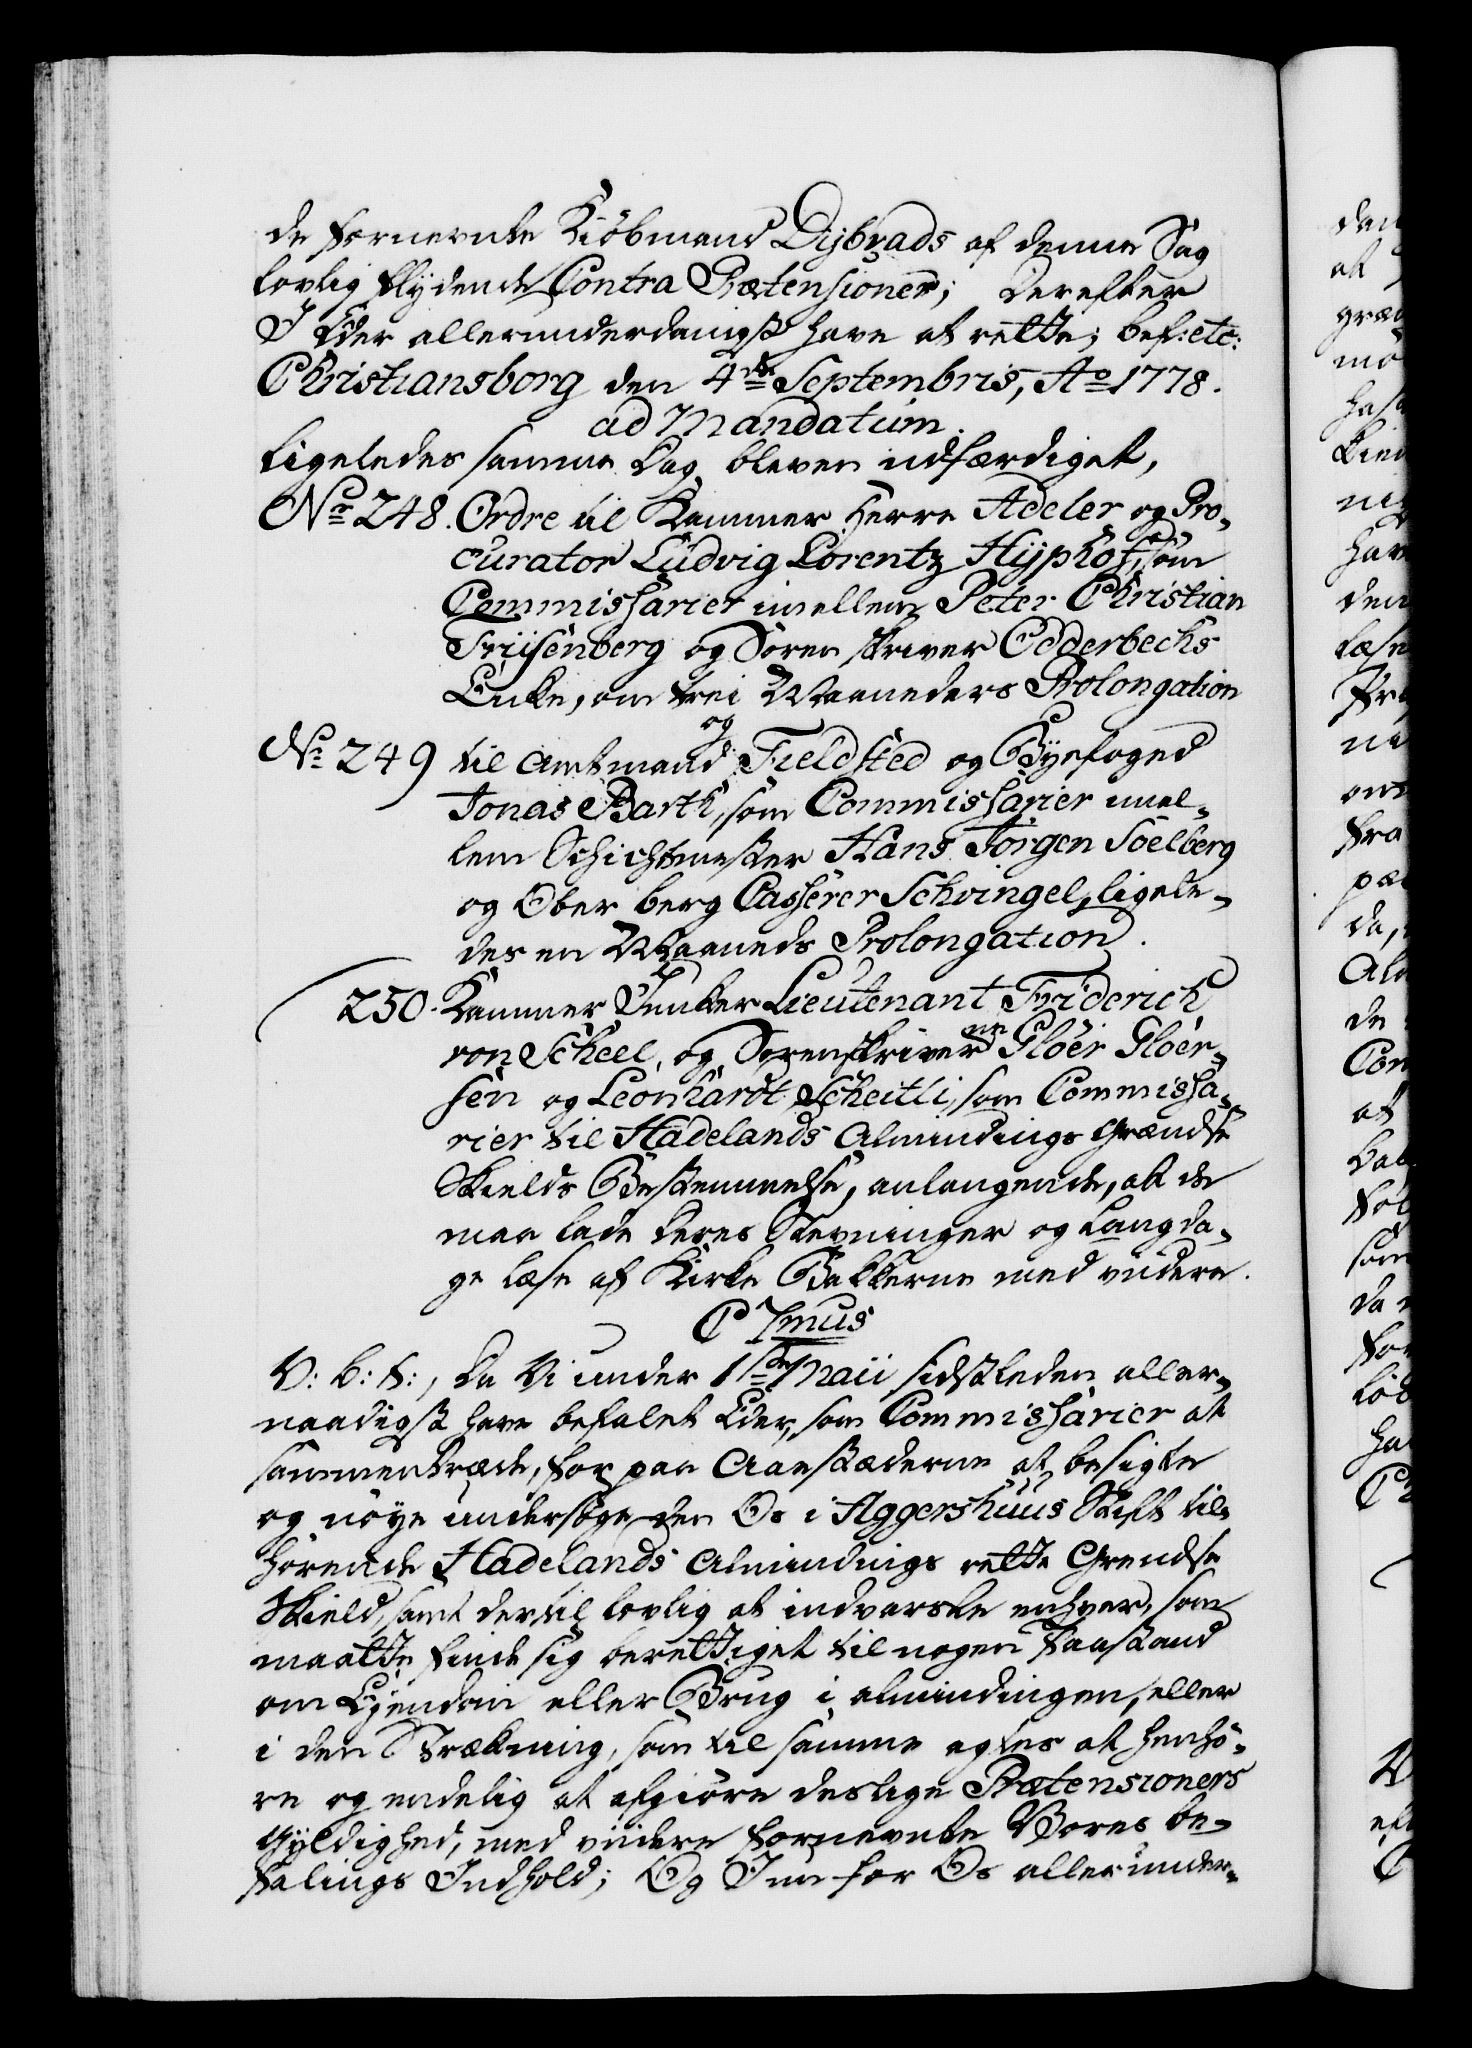 de fornevnte Kiöbmand Dybrads af denne Sag
lovlig flydende Contra Prætensioner; derefter
I Eder allerunderdanigst have at rette; bef: etc:
Christiansborg den 4de Septembris, Ao 1778.
ad Mandatum.
Ligeledes samme Dag bleven udfærdiget,
No 248. Ordre til Kammer Herre Adeler og Pro-
curator Ludvig Lorentz Hyphof, som
Commissarier imellem Peter Christian
Friisenberg og Sorenskriver Odderbechs
Enke, om trei Maaneders Prolongation
og
No 249 til Amtmand Fieldsted og Byefoged
Jonas Barth, som Commissarier imel-
lem Schichtmester Hans Jørgen Soelberg
og Ober berg Casserer Schvingel, ligele-
des en Maaneds Prolongation.
250. Kammer Junker Lieutenant Friderich
von Scheel, og Sorenskriverne Gloër Gloër-
sen og Leonhardt Scheitli, som Commissa-
rier til Hadelands Almindings Grændse
Skields Bestemmelse, anlangende, at de
maa lade deres Stevninger og Langda-
ge læse af Kirke Bakkerne med viidere.
C 7mus
V: G: T:, Da Vi under 1ste Maii sidstleden aller-
naadigst have befalet Eder, som Commissarier at
sammentræde, for paa Aaestæderne at besigte
og nöye undersöge den Os i Aggershuus Stift til-
hörende Hadelands Almindings rette Grendse
Skield, samt dertil lovlig at indvarsle enhver, som
maatte finde sig berettiget til nogen Paastand
om Ejendom eller Brug i Almindingen, eller
i den Strækning, som til samme agtes at henhö-
re og endelig at afgiøre deslige Prætensioners
Gyldighed, med viidere fornevnte Vores be-
falings Indhold; Og I nu for Os allerunder-